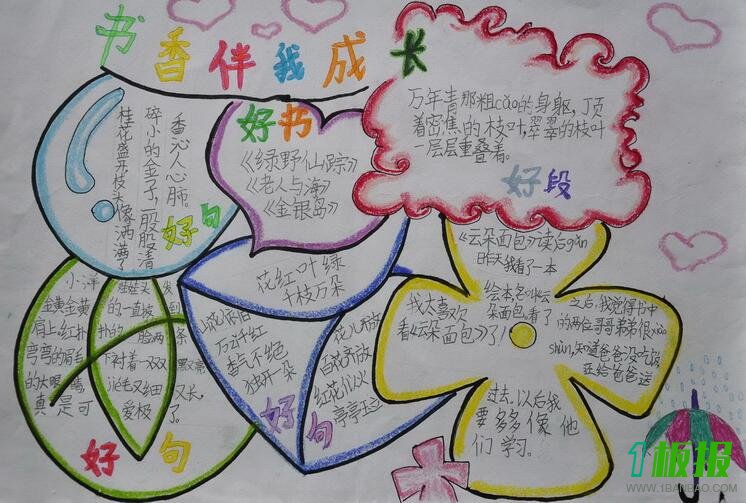 书香伴我成长
桂花盛开枝头像洒满了
碎小的金子一股股清
香沁人心脾
好句
好书
《绿野仙踪》
《老人与海》
《金银岛》
万年青那粗cāo的身躯,顶
着密焦的枝叶,翠翠的枝叶
一层层重叠着。
好段
小洋
金黄金黄
肩上红扑
弯弯的眉毛
的大眼睛
真是可
娃娃头
的一直披
扑的脸两
下衬着一双双
jié毛又细
爱极
发
到
条
黑又亮
又长,
了。
好句
花红叶绿
千枝万朵
万紫千红
香气不绝
独开一朵
花儿开放
百花齐放
红花似火
亭亭玉立
好句
《云朵面包》读后gǎn
昨天我看了一本
绘本,名叫《云
朵面包》,看了
我太喜欢
看《云朵面包》了!
之后,我觉得书中
的两位哥哥弟弟很xiào
shùn,知道爸爸没吃饭
还给爸爸送
过去.以后我
要多多像他
们学习。
1板报
WWW.1BANBAO.COM